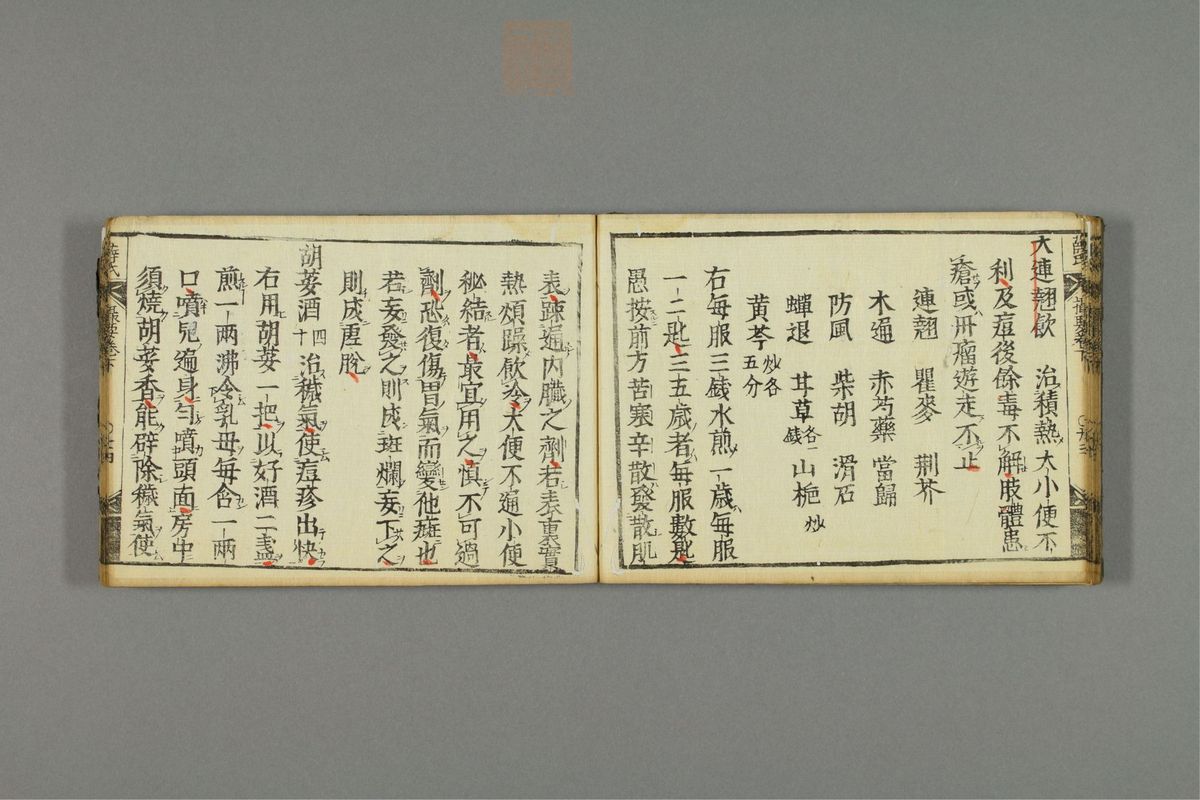 大連翹飲　治積熱大小便不
利及痘後餘毒不解肢體患
瘡或丹瘤遊走不止
連翹　瞿麥　荆芥
木通　赤芍藥　當歸
防風　柴胡　滑石
蟬退　甘草各一錢　山梔炒
黄芩炒各五分
右每服三錢水煎一歳每服
一二匙三五歳者每服數匙
愚按前方苦寒辛散發散肌
表疎通内臟之劑若表裏實
熱煩躁飲冷大便不通小便
秘結者最宜用之慎不可過
劑恐復傷胃氣而變他症也
若妄發之則成斑爛妄下之
則成虚脫
胡荽酒四十　治穢氣使痘疹出快
右用胡荽一把以好酒二盞
煎一兩沸令乳母每含一兩
口噴兒遍身勻噴頭面房中
須燒胡荽香能辟除穢氣使